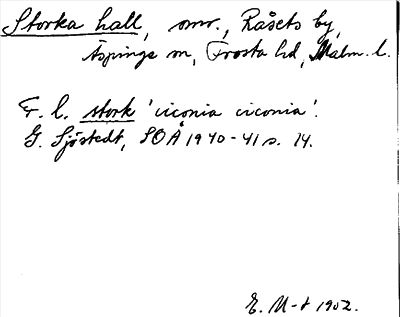 Storka hall, omr., Råsets by,
Äspinge sn, Frosta hd, Malm. l.
F. l. stork 'ciconia ciconia'.
G. Sjöstedt, SOÅ 1940-41 s. 14.
E. M-t 1952.